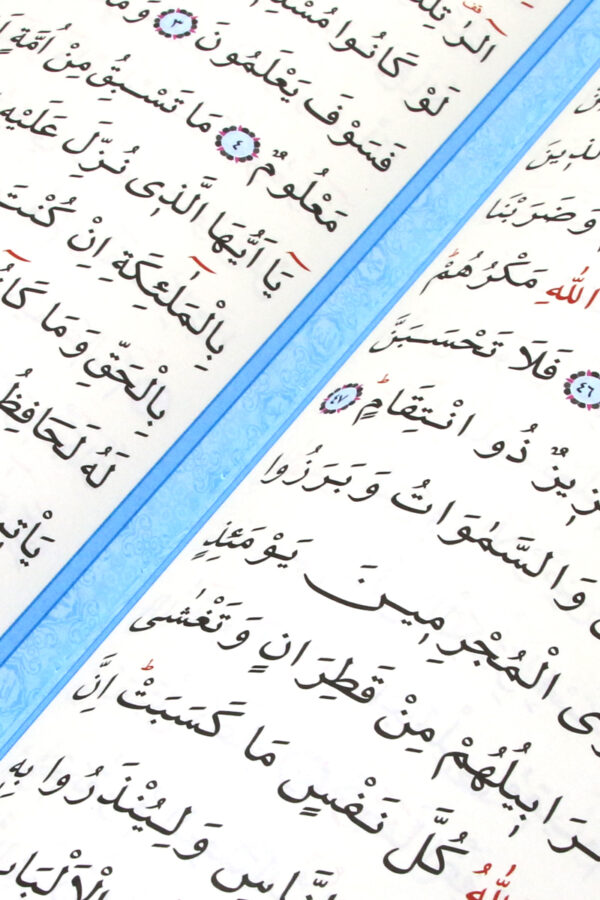 لذينَ
وَضَرَبْنَا
اللّٰهِ مَكْرُهُمْ
٤٦ فَلَا تَحْسَبَنَّ
زِيزٌ ذُو انْتِقَامٍ ٤٧
وَالسَّمٰوَاتُ وَبَرَزُوا
ى الْمُجْرِمِينَ يَوْمَئِذٍ
رَابِيلُهُمْ مِنْ قَطِرَانٍ وَتَغْشٰى
اللّٰهُ كُلَّ نَفْسٍ مَا كَسَبَتْ اِنَّ
لنَّاسِ وَلِيُنْذَرُوا بِهِ
الْاَلْبَاب
الٓرٰ تِلْكَ
لَوْ كَانُوا مُسْلِمِ
فَسَوْفَ يَعْلَمُونَ ٣ وَمَا
مَعْلُومٌ ٤ مَا تَسْبِقُ مِنْ اُمَّةٍ
يَٓا اَيُّهَا الَّذِى نُزِّلَ عَلَيْهِ
بِالْمَلٰٓئِكَةِ اِنْ كُنْتَ
بِالْحَقِّ وَمَا كَانُٓ
لَهُ لَحَافِظُ
يَأْتِي